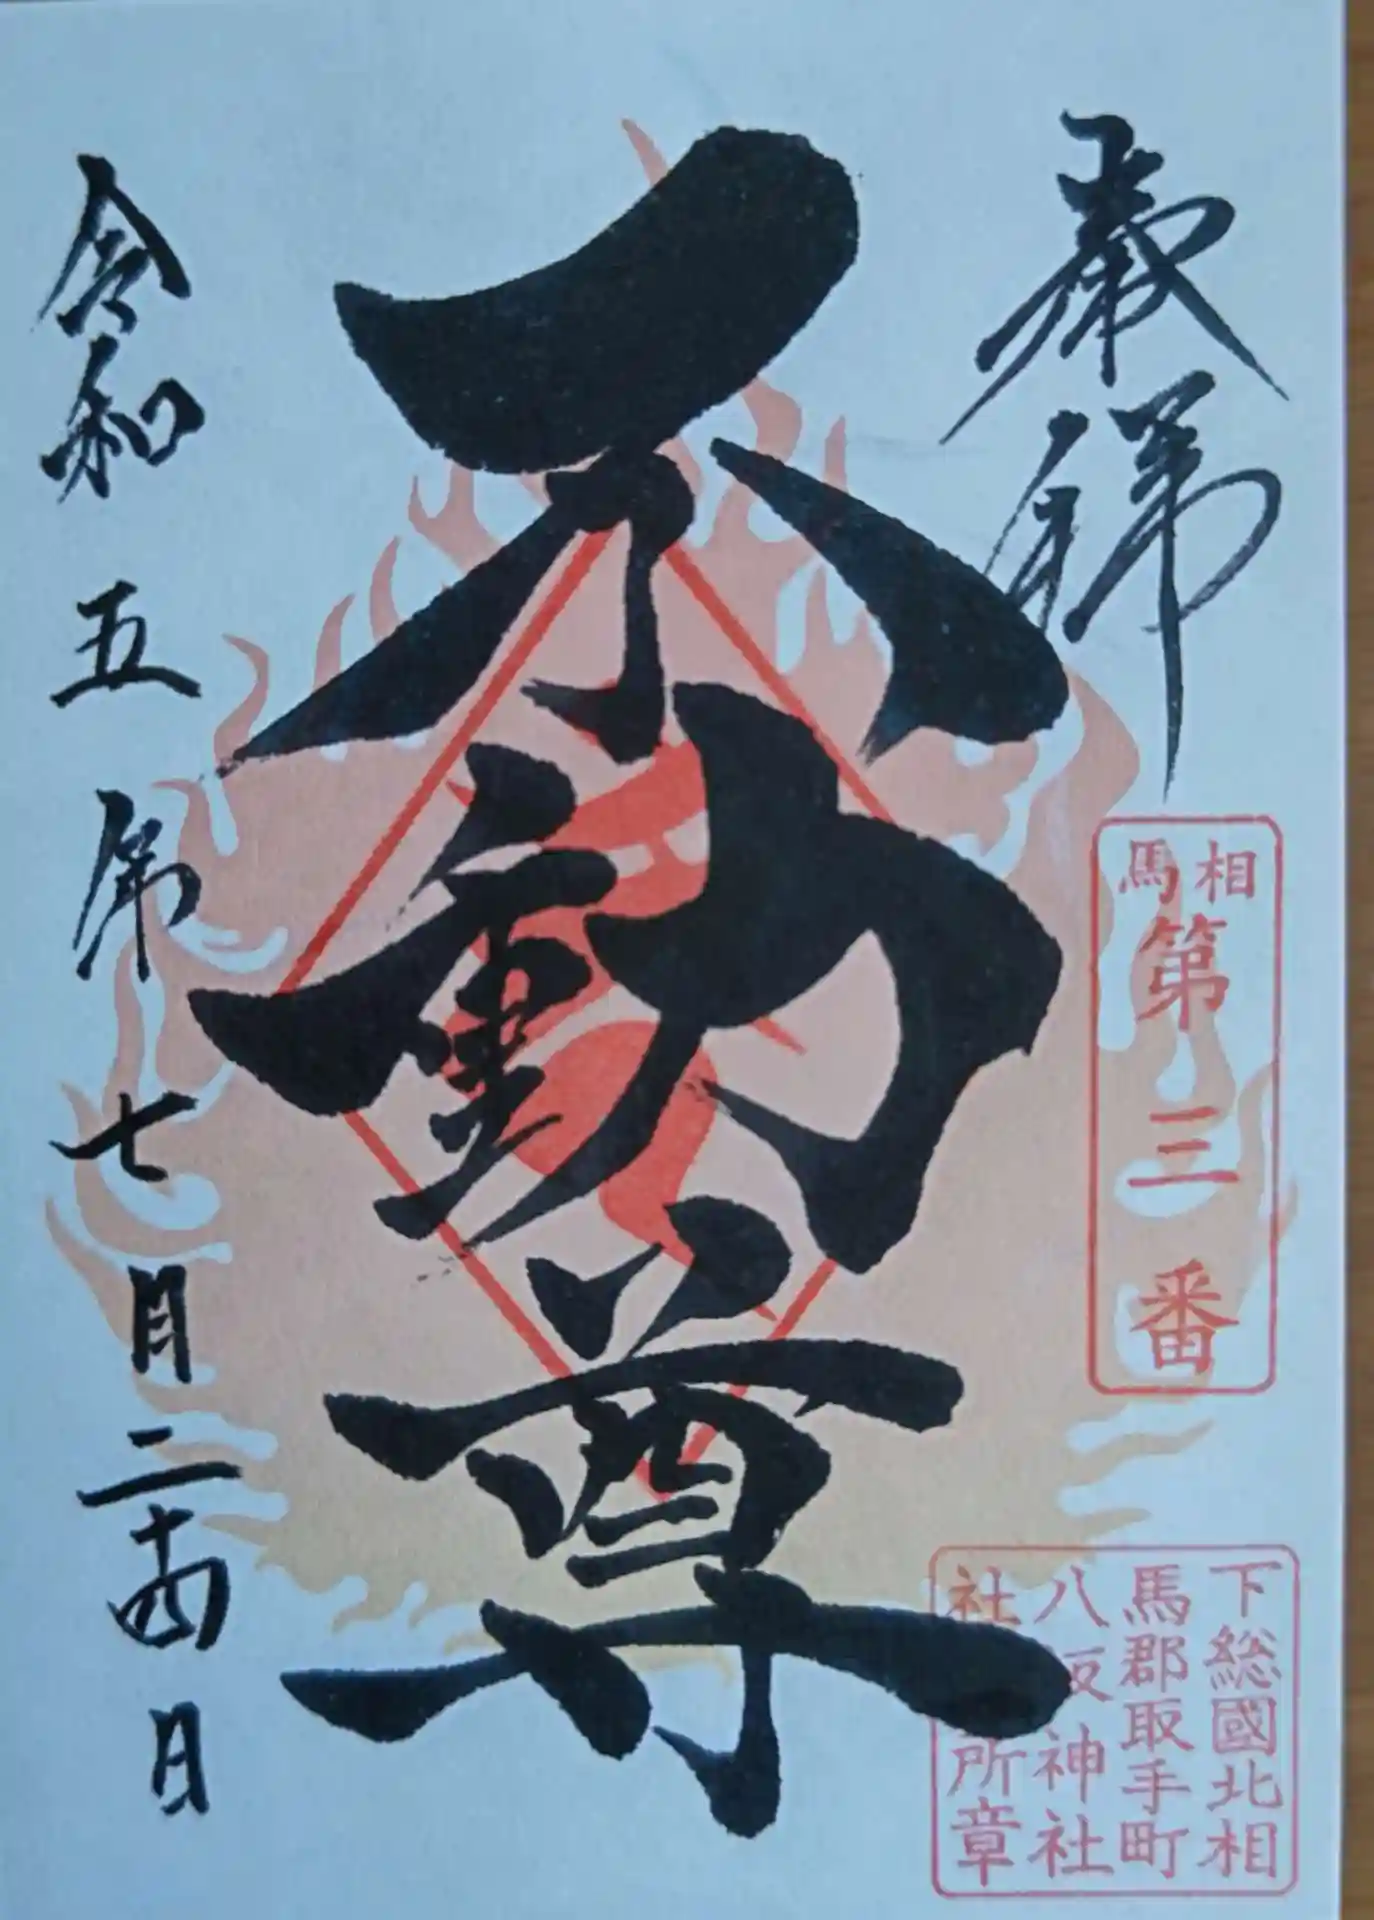 奉拝
相馬
第三番
不動尊
令和五年七月二十四日
下総國北相
馬郡取手町
八坂神社
社
所章